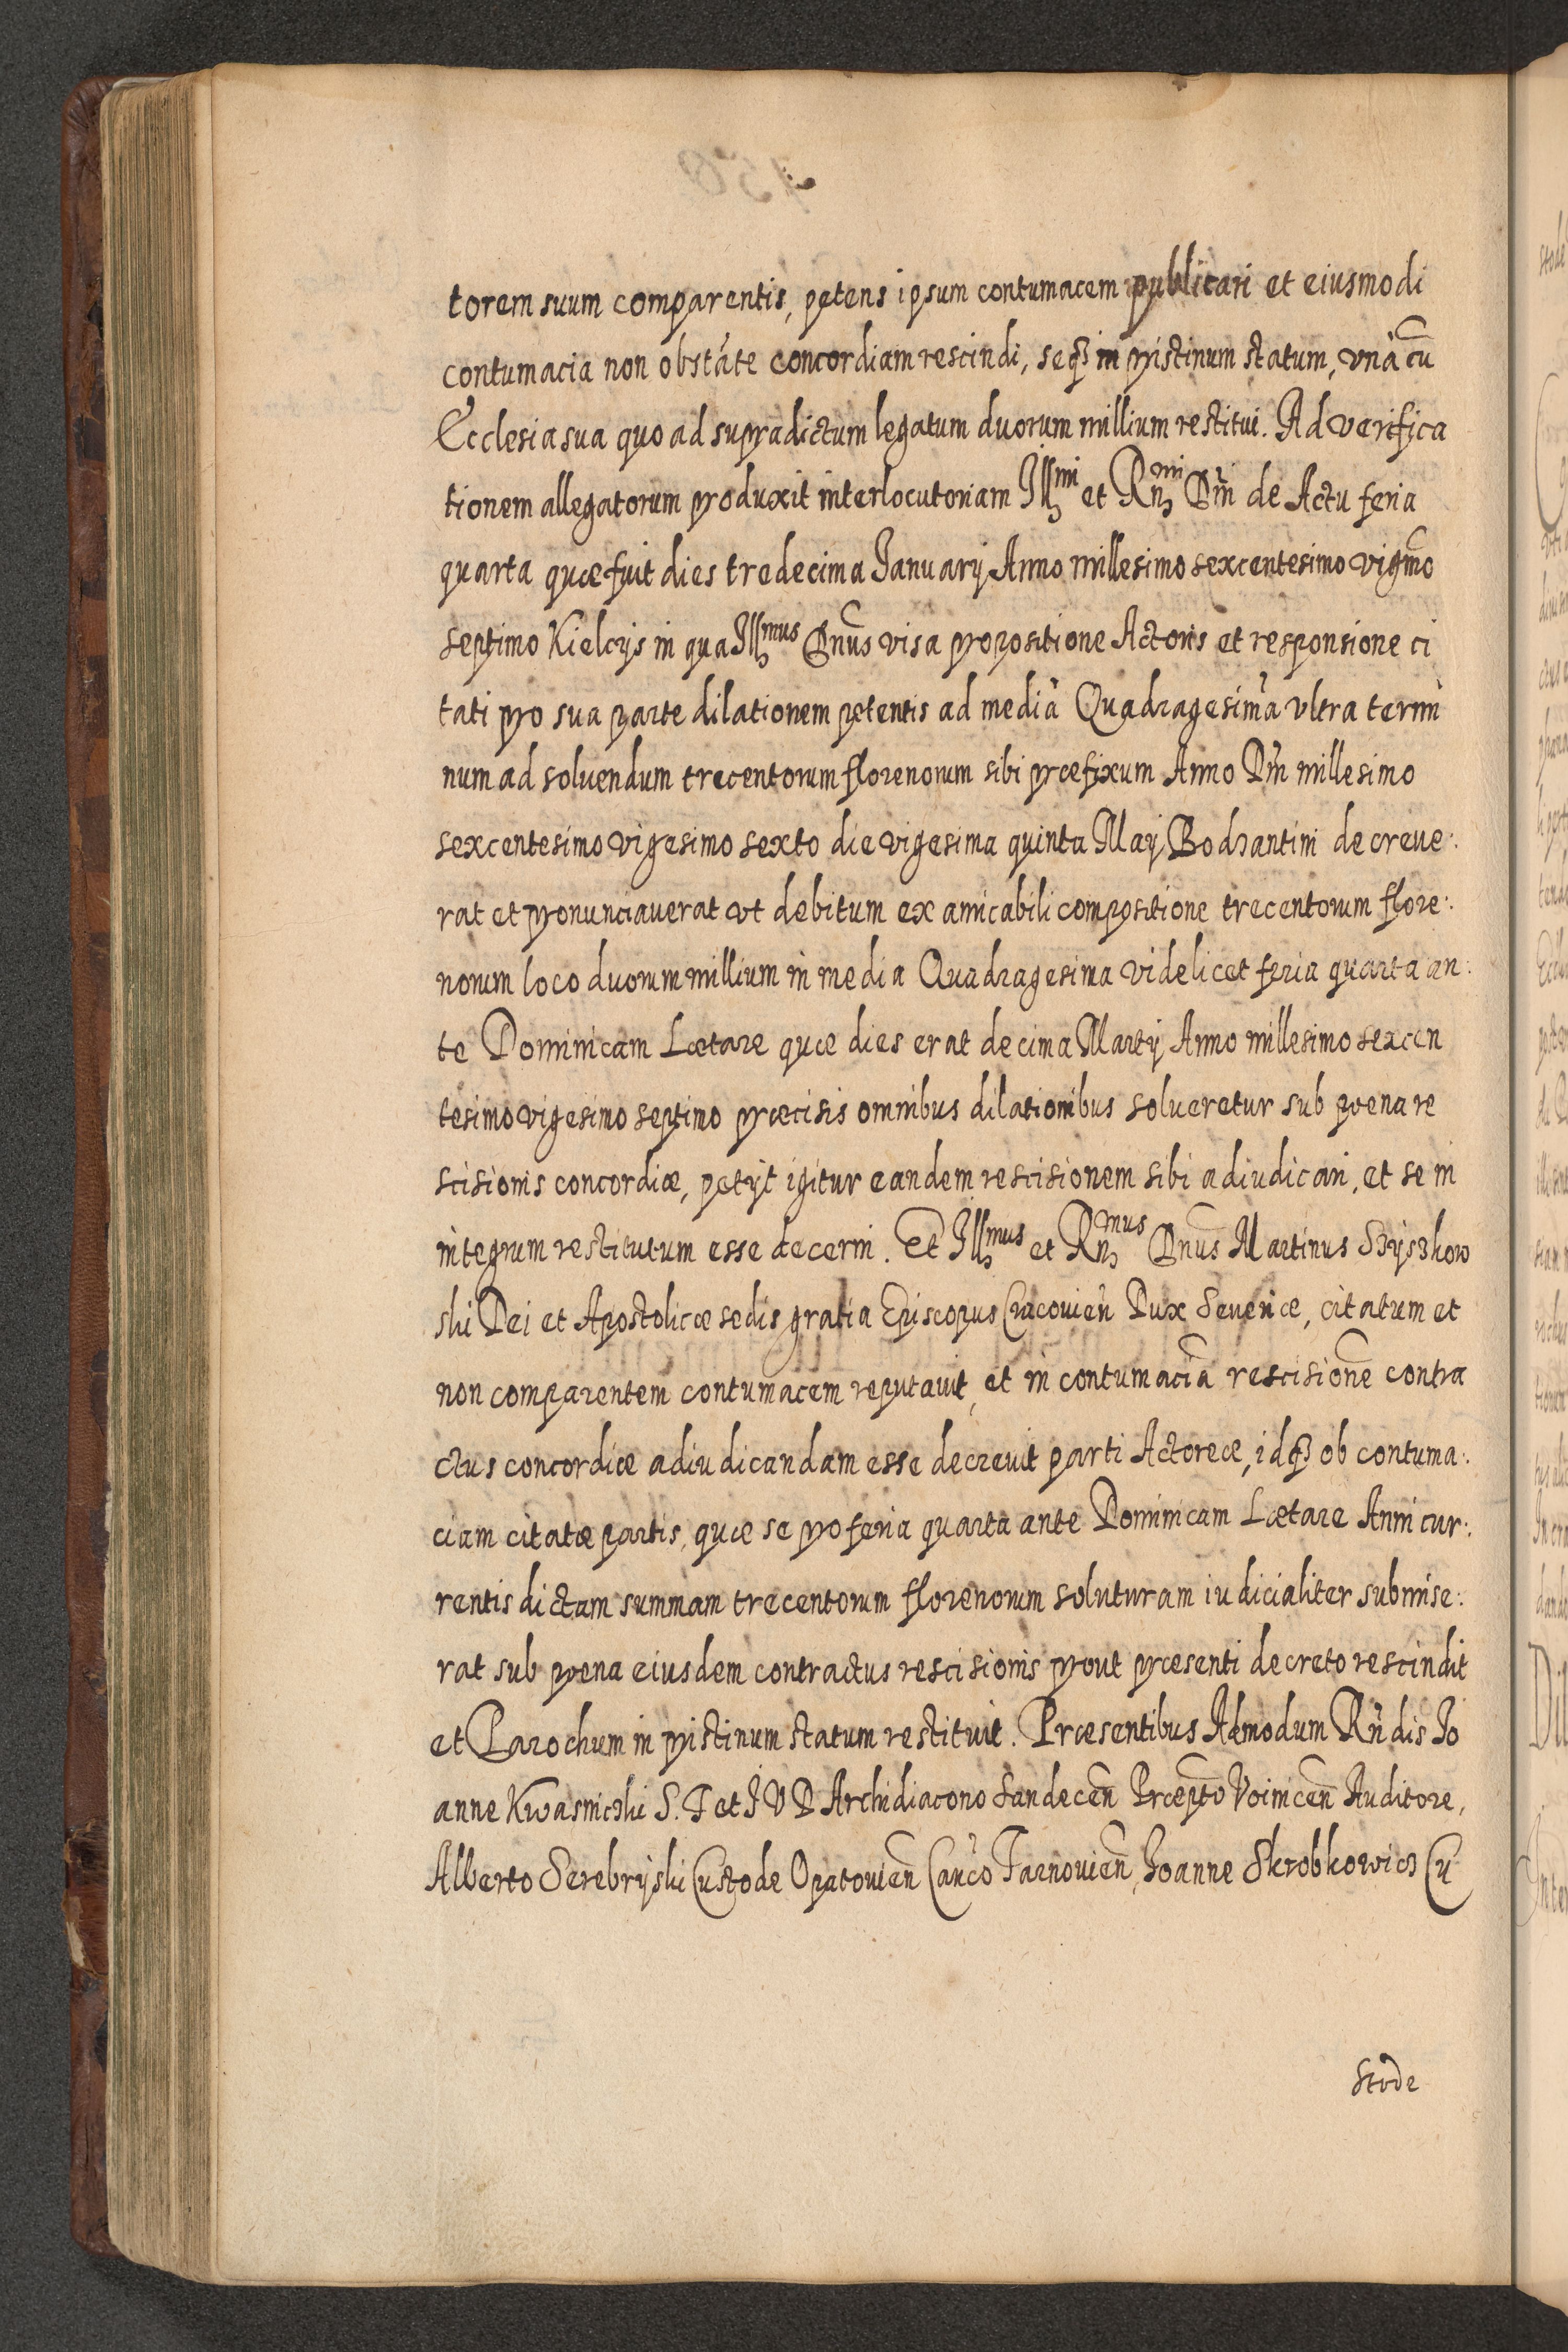 torem suum comparentis, petens ipsum contumacem publicari et eiusmodi
contumacia non obstãte concordiam rescindi, seq₃ in pristinum statum, vnà cũ
Ecclesia sua quo ad supradictum legatum duorum millium restitui. Ad verifica
tionem allegatorum produxit interlocutoriam Illmi et Rñmi Dñi de Actu feria
quarta quæ fuit dies tredecima Januarij Anno millesimo sexcentesimo vigmõ
septimo Kielcijs in qua Illmus Dñus visa propositione Actoris et responsione ci
tati pro sua parte dilationem petentis ad mediã Quadragesimã vltra termi
num ad soluendum trecentorum florenorum sibi præfixum Anno Dñi millesimo
sexcentesimo vigesimo sexto die vigesima quinta Maij Bodzantini decreue:
rat et pronunciauerat vt debitum ex amicabili compositione trecentorum flore:
norum loco duorum millium in media Quadragesima videlicet feria quarta an:
te Dominicam Lætare quæ dies erat decima Martij Anno millesimo sexcen
tesimo vigesimo septimo præcisis omnibus dilationibus solueretur sub pœna re
scisionis concordiæ, petijt igitur eandem rescisionem sibi adiudicari, et se in
integrum restitutum esse decerni. Et Illmus et Rñmus Dñus Martinus Szyszkow
ski Dei et Apostolicæ sedis gratia Episcopus Cracouieñ Dux Seueriæ, citatum et
non comparentem contumacem reputauit, et in contumaciã rescisionẽ contra
ctus concordiæ adiudicandam esse decreuit parti Actoreæ, idq₃ ob contuma:
ciam citatæ partis, quæ se pro feria quarta ante Dominicam Lætare Anni cur:
rentis dictam summam trecentorum florenorum soluturam iudicialiter submise:
rat sub pœna eiusdem contractus rescisionis prout præsenti decreto rescindit
et Parochum in pristinum statum restituit. Præsentibus Admodum Rñdis Jo
anne Kwasnicski S. T et J V D Archidiacono Sandeceñ Præptõ Voiniceñ Auditore,
Alberto Serebryski Custode Opatouieñ Cancõ Tarnouieñ, Joanne Skrobkowicz Cu
stode